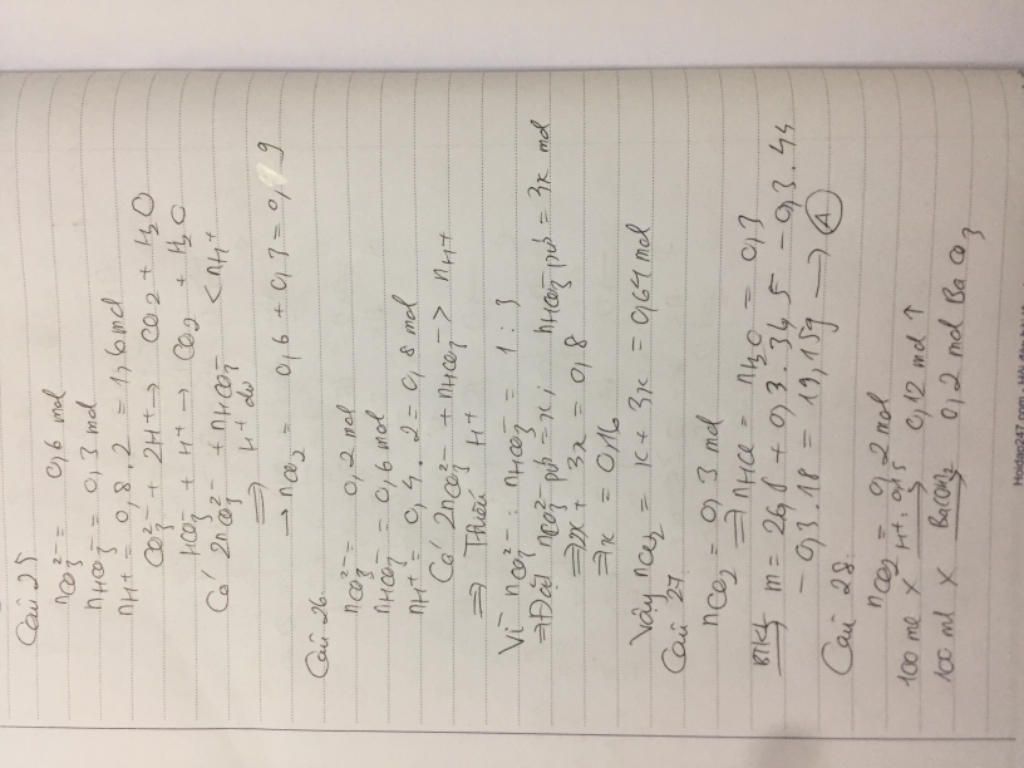 Câu 25
nCO₃²⁻ = 0,6 mol
nHCO₃⁻ = 0,3 mol
nH⁺ = 0,8.2 = 1,6 mol
CO₃²⁻ + 2H⁺ → CO₂ + H₂O
HCO₃⁻ + H⁺ → CO₂ + H₂O
Có 2nCO₃²⁻ + nHCO₃⁻ < nH⁺
⇒ H⁺ dư
→ nCO₂ = 0,6 + 0,3 = 0,9
Câu 26.
nCO₃²⁻ = 0,2 mol
nHCO₃⁻ = 0,6 mol
nH⁺ = 0,4.2 = 0,8 mol
Có 2nCO₃²⁻ + nHCO₃⁻ > nH⁺
⇒ Thiếu H⁺
Vì nCO₃²⁻ : nHCO₃⁻ = 1 : 3
⇒ Đặt nCO₃²⁻ pứ = x; nHCO₃⁻ pứ = 3x mol
⇒ 2x + 3x = 0,8
⇒ x = 0,16
Vậy nCO₂ = x + 3x = 0,64 mol
Câu 27.
nCO₂ = 0,3 mol
⇒ nHCl = nH₂O = 0,3
BTKL → m = 26,8 + 0,3.34,5 - 0,3.44
- 0,3.18 = 19,15g → A
Câu 28.
nCO₂ = 0,2 mol
100 ml X H⁺: 0,15 → 0,12 mol ↑
100 ml X Ba(OH)₂ → 0,2 mol BaCO₃
Hoidap247.com